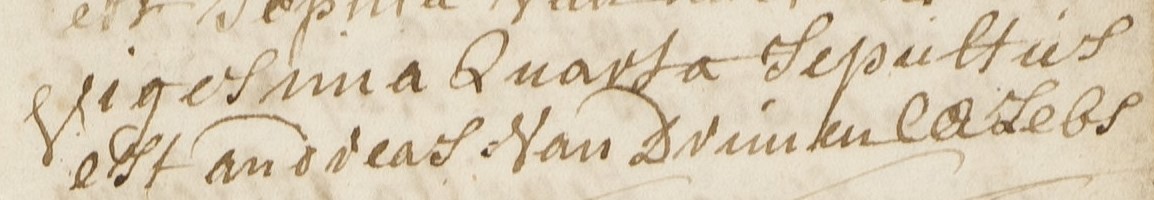 est Sepulta Van
Vigesima Quarta Sepultus
est andreas Van Drunen Cælebs